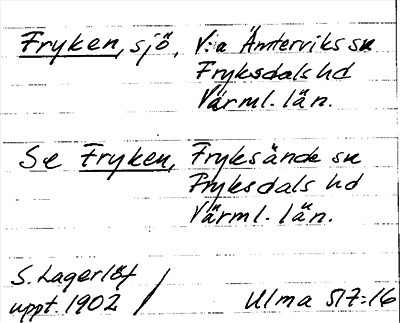 Fryken, sjö, V:a Ämterviks sn
Fryksdals hd
Värml. län.
Se Fryken, Fryksände sn
Fryksdals hd
Värml. län.
S. Lagerlöf
uppt. 1902 /
Ulma 517:16